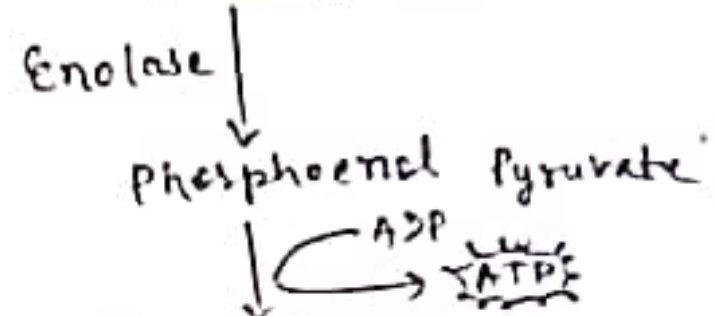 Enolase
Phosphoenol Pyruvate
ADP
ATP